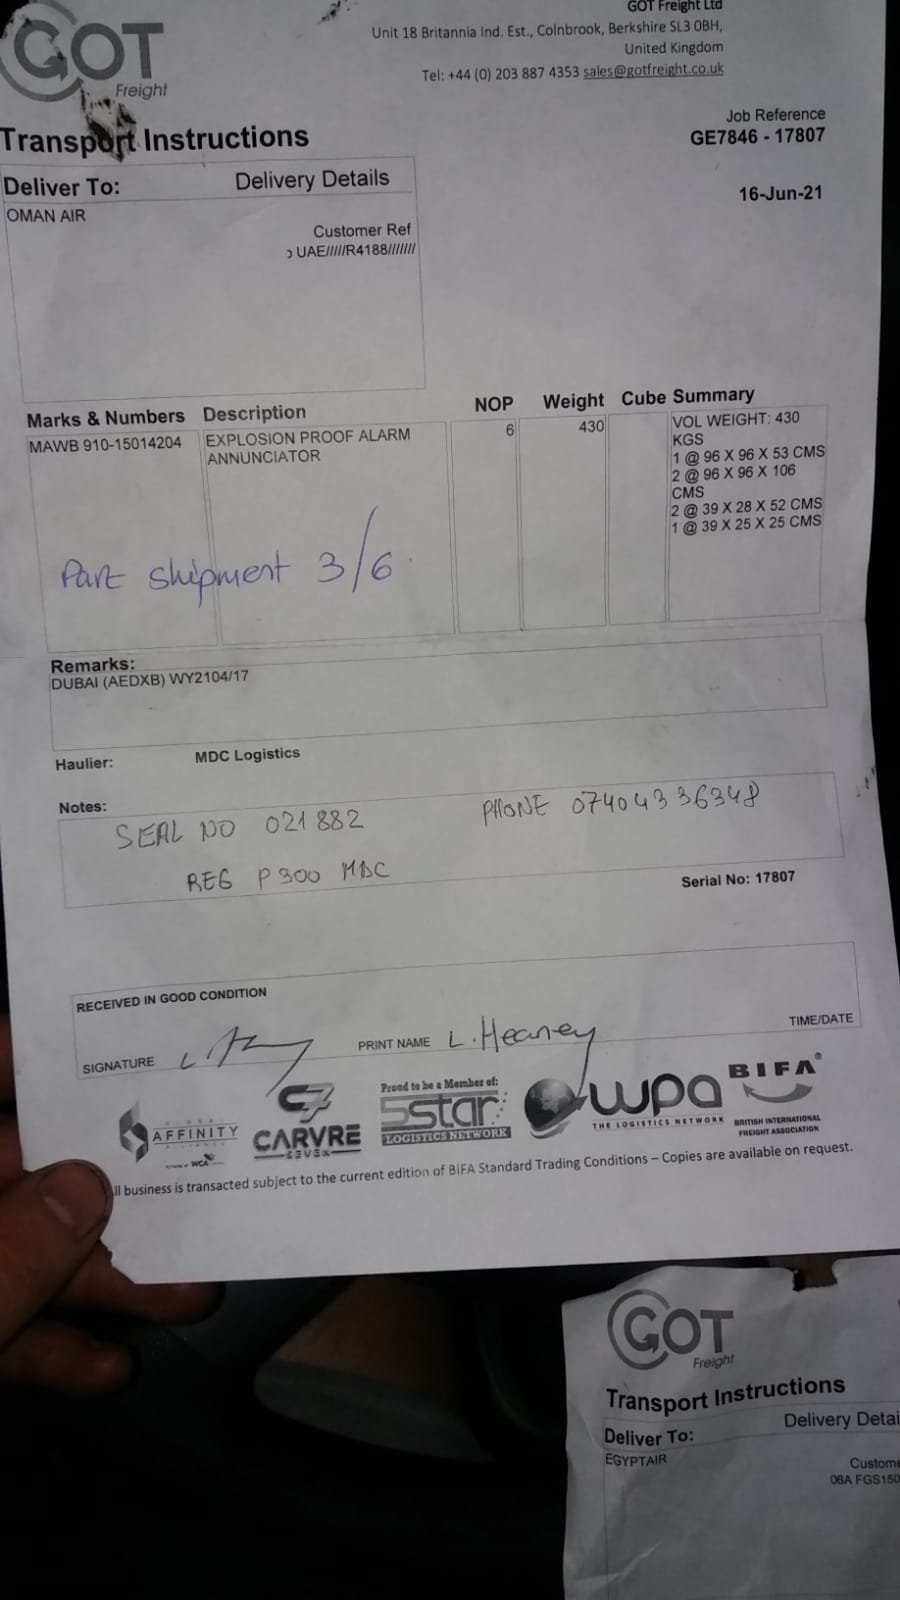 GOT Freight
GOT Freight Ltd
Unit 18 Britannia Ind. Est., Colnbrook, Berkshire SL3 0BH,
United Kingdom
Tel: +44 (0) 203 887 4353 sales@gotfreight.co.uk
Transport Instructions
Job Reference
GE7846 - 17807
16-Jun-21
Deliver To: Delivery Details
OMAN AIR
Customer Ref
UAE/////R4188///////
Marks & Numbers Description NOP Weight Cube Summary
MAWB 910-15014204 EXPLOSION PROOF ALARM 6 430 VOL WEIGHT: 430
ANNUNCIATOR KGS
1 @ 96 X 96 X 53 CMS
2 @ 96 X 96 X 106
CMS
2 @ 39 X 28 X 52 CMS
1 @ 39 X 25 X 25 CMS
Part shipment 3/6
Remarks:
DUBAI (AEDXB) WY2104/17
Haulier: MDC Logistics
Notes:
SEAL NO 021882 PHONE 07404336348
REG P300 MDC
Serial No: 17807
RECEIVED IN GOOD CONDITION
SIGNATURE PRINT NAME L. Heaney TIME/DATE
AFFINITY
WCA
C7
CARVRE
SEVEN
Proud to be a Member of:
5star
LOGISTICS NETWORK
wpa
THE LOGISTICS NETWORK
BIFA®
BRITISH INTERNATIONAL
FREIGHT ASSOCIATION
ll business is transacted subject to the current edition of BIFA Standard Trading Conditions – Copies are available on request.
GOT Freight
Transport Instructions
Delivery Detai
Deliver To:
EGYPTAIR
Custome
06A FGS150